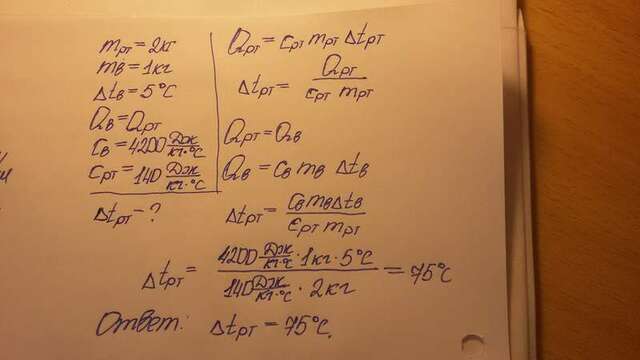 mрт = 2кг
mв = 1кг
Δtв = 5°C
Qв = Qрт
cв = 4200 Дж/кг·°C
cрт = 140 Дж/кг·°C
Δtрт = ?
Qрт = cрт mрт Δtрт
Δtрт = Qрт / cрт mрт
Qрт = Qв
Qв = cв mв Δtв
Δtрт = cв mв Δtв / cрт mрт
Δtрт = 4200 Дж/кг·°C · 1кг · 5°C / 140 Дж/кг·°C · 2кг = 75°C
Ответ: Δtрт = 75°C.